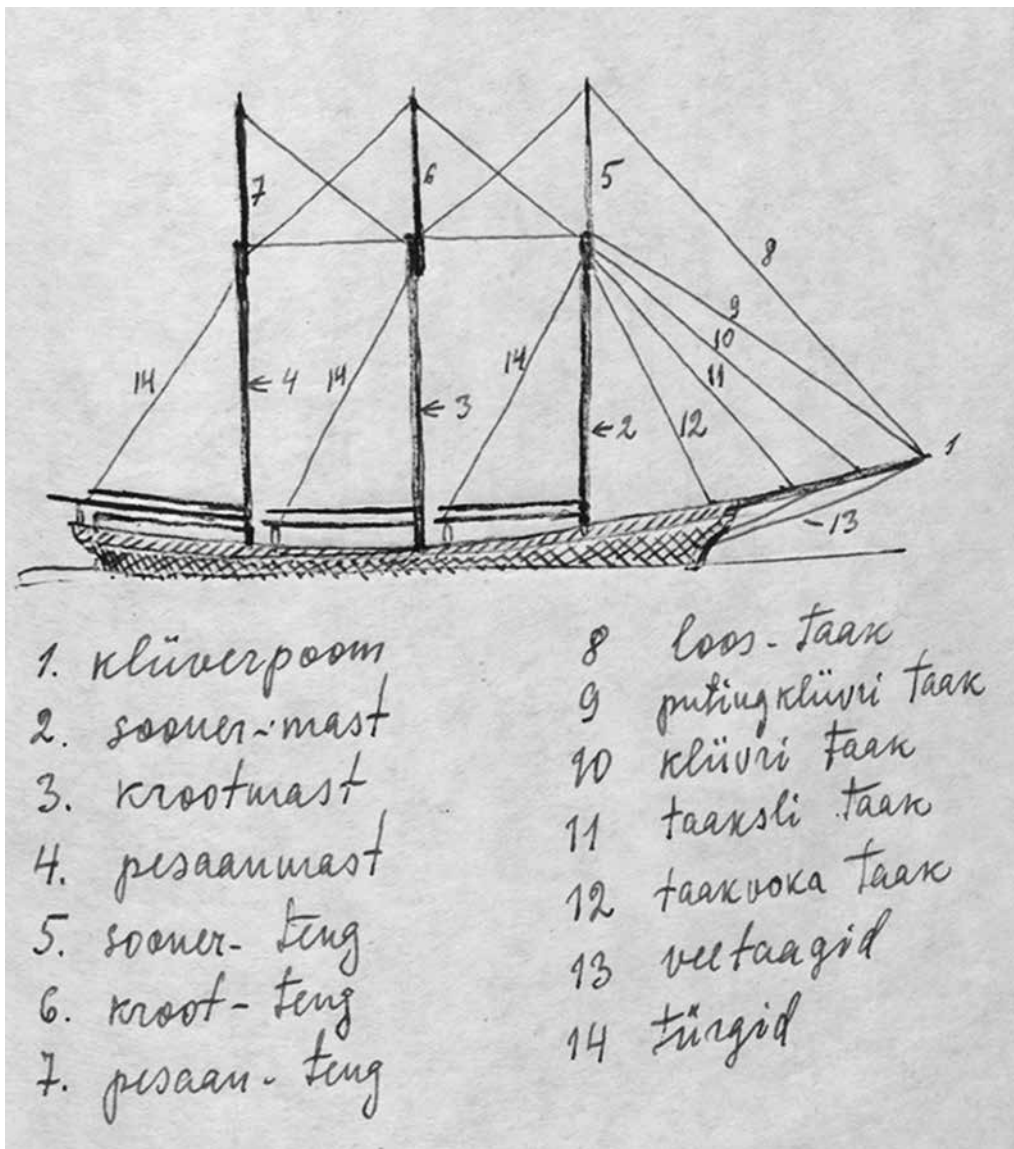 7
6
5
8
9
10
11
12
14
← 4
14
← 3
14
← 2
1
- 13
1. klüverpoom
2. sooner-mast
3. krootmast
4. pesaanmast
5. sooner- teng
6. kroot- teng
7. pesaan- teng
8 loos- taak
9 putingklüvri taak
10 klüvri taak
11 taaksli taak
12 taakvoka taak
13 veetaagid
14 türgid